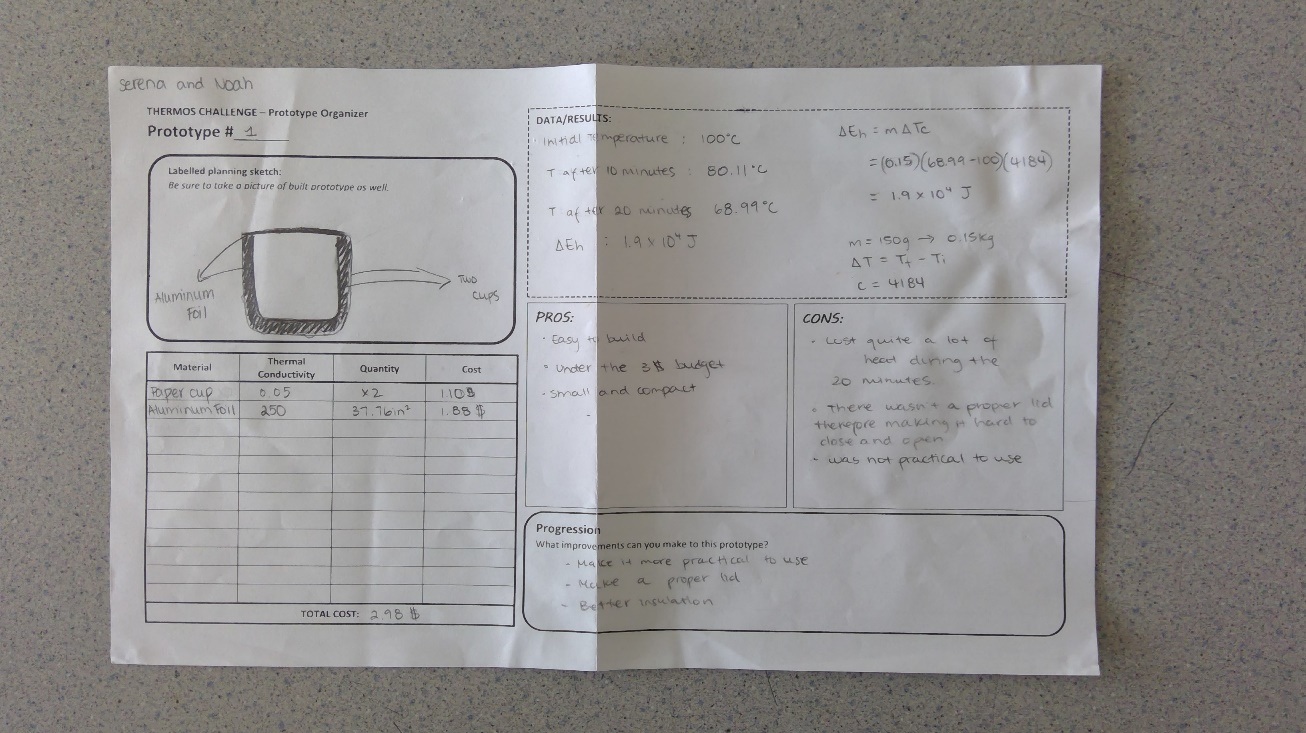 Serena and Noah
THERMOS CHALLENGE – Prototype Organizer
Prototype # 1
Labelled planning sketch:
Be sure to take a picture of built prototype as well.
Aluminum
Foil
Two
cups
Material Thermal Conductivity Quantity Cost
Paper cup 0.05 x2 1.10$
Aluminum Foil 250 37.76in² 1.88 $
TOTAL COST: 2.98 $
DATA/RESULTS:
Initial Temperature : 100°C
T after 10 minutes : 80.11°C
T after 20 minutes 68.99°C
ΔEh : 1.9 x 10⁴ J
ΔEh = mΔTc
= (0.15)(68.99-100)(4184)
= 1.9 x 10⁴ J
m = 150g → 0.15kg
ΔT = Tf - Ti
c = 4184
PROS:
· Easy to build
· Under the 3$ budget
- Small and compact
-
CONS:
· Lost quite a lot of
heat during the
20 minutes.
· There wasn't a proper lid
therefore making it hard to
close and open
- was not practical to use
Progression
What improvements can you make to this prototype?
- Make it more practical to use
- Make a proper lid
- Better insulation